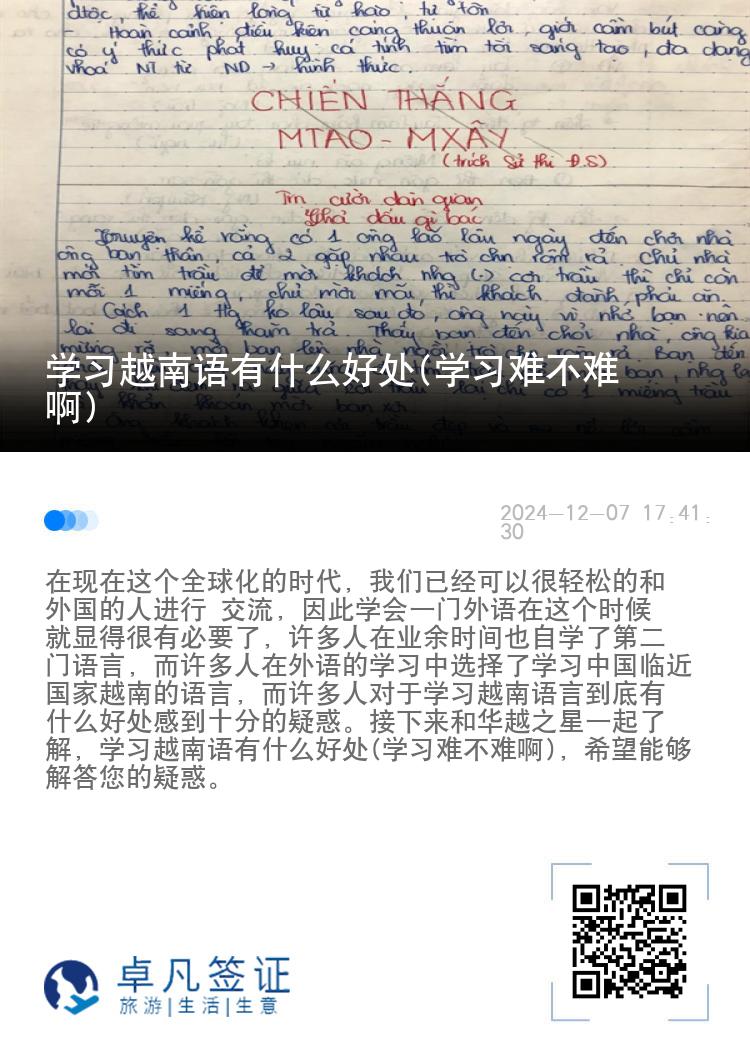 dtộc, thể hiện lòng tự hào, tự tôn
- Hoàn cảnh, điều kiện càng thuận lợi, giới cầm bút càng
có ý thức phát huy cá tính tìm tòi sáng tạo, đa dạng
hoá NT từ ND → hình thức.
CHIẾN THẮNG
MTAO - MXÂY
(trích Sử thi Đ.S)
Tr cười dân gian
Khá dấu gì bác
Truyện kể rằng có 1 ông lão lâu ngày đến chơi nhà
ông bạn thân, cả 2 gặp nhau trò chn rôm rả. Chủ nhà
mới tìm trầu để mời khách nhg (-) cơi trầu thì chỉ còn
mỗi 1 miếng, chủ mời mãi, thì khách đành phải ăn.
Cách 1 thg ko lâu sau đó, ông này vì nhớ bạn nên
lại đi sang thăm trả. Thấy bạn đến chơi nhà, ông kia
学习越南语有什么好处(学习难不难
啊)
2024-12-07 17:41:
30
在现在这个全球化的时代，我们已经可以很轻松的和
外国的人进行 交流，因此学会一门外语在这个时候
就显得很有必要了，许多人在业余时间也自学了第二
门语言，而许多人在外语的学习中选择了学习中国临近
国家越南的语言，而许多人对于学习越南语言到底有
什么好处感到十分的疑惑。接下来和华越之星一起了
解，学习越南语有什么好处(学习难不难啊)，希望能够
解答您的疑惑。
卓凡签证
旅游|生活|生意